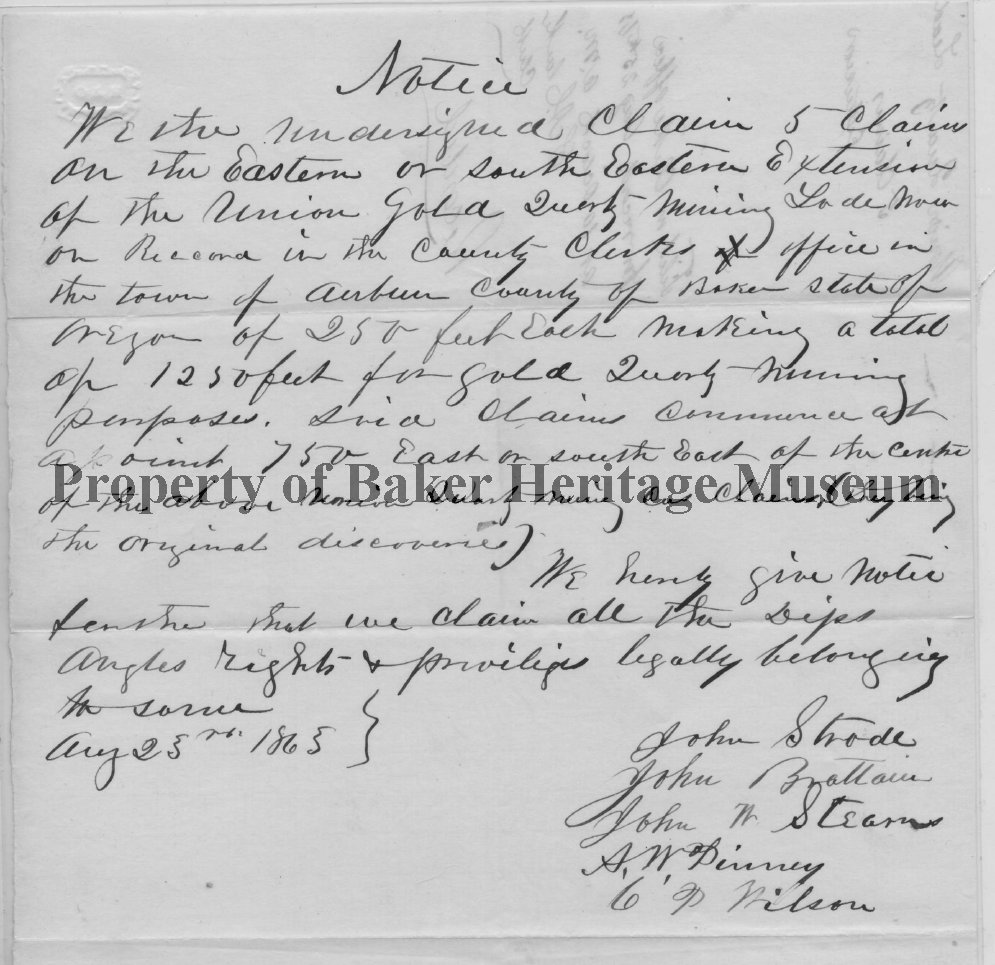 Notice
We the undersigned Claim 5 Claims
on the Eastern or south Eastern Extension
of the Union Gold Quartz Mining Lode Now
on Reccord in the County Clerks office in
the town of Auburn County of Baker state of
Oregon of 250 feet Each making a total
of 1250 feet for gold Quartz Mining
purposes. Said Claims commence at
a point 750 East or south East of the centre
Property of Baker Heritage Museum
of the above Union Quartz Mining Cos Claims
the original discoveries)
We hereby give Notic
further that we claim all the Dips
Angles rights & priviliges legally belonging
to same
Aug 23rd 1863
John Strode
John Brattain
John W Stearns
A. W. Pinney
C P Wilson